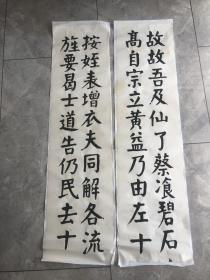 故故吾及仙了蔡飡碧石
高自宗立黄益乃由左十
按姪表增衣夫同解各流
旌要曷士道告仍民去十